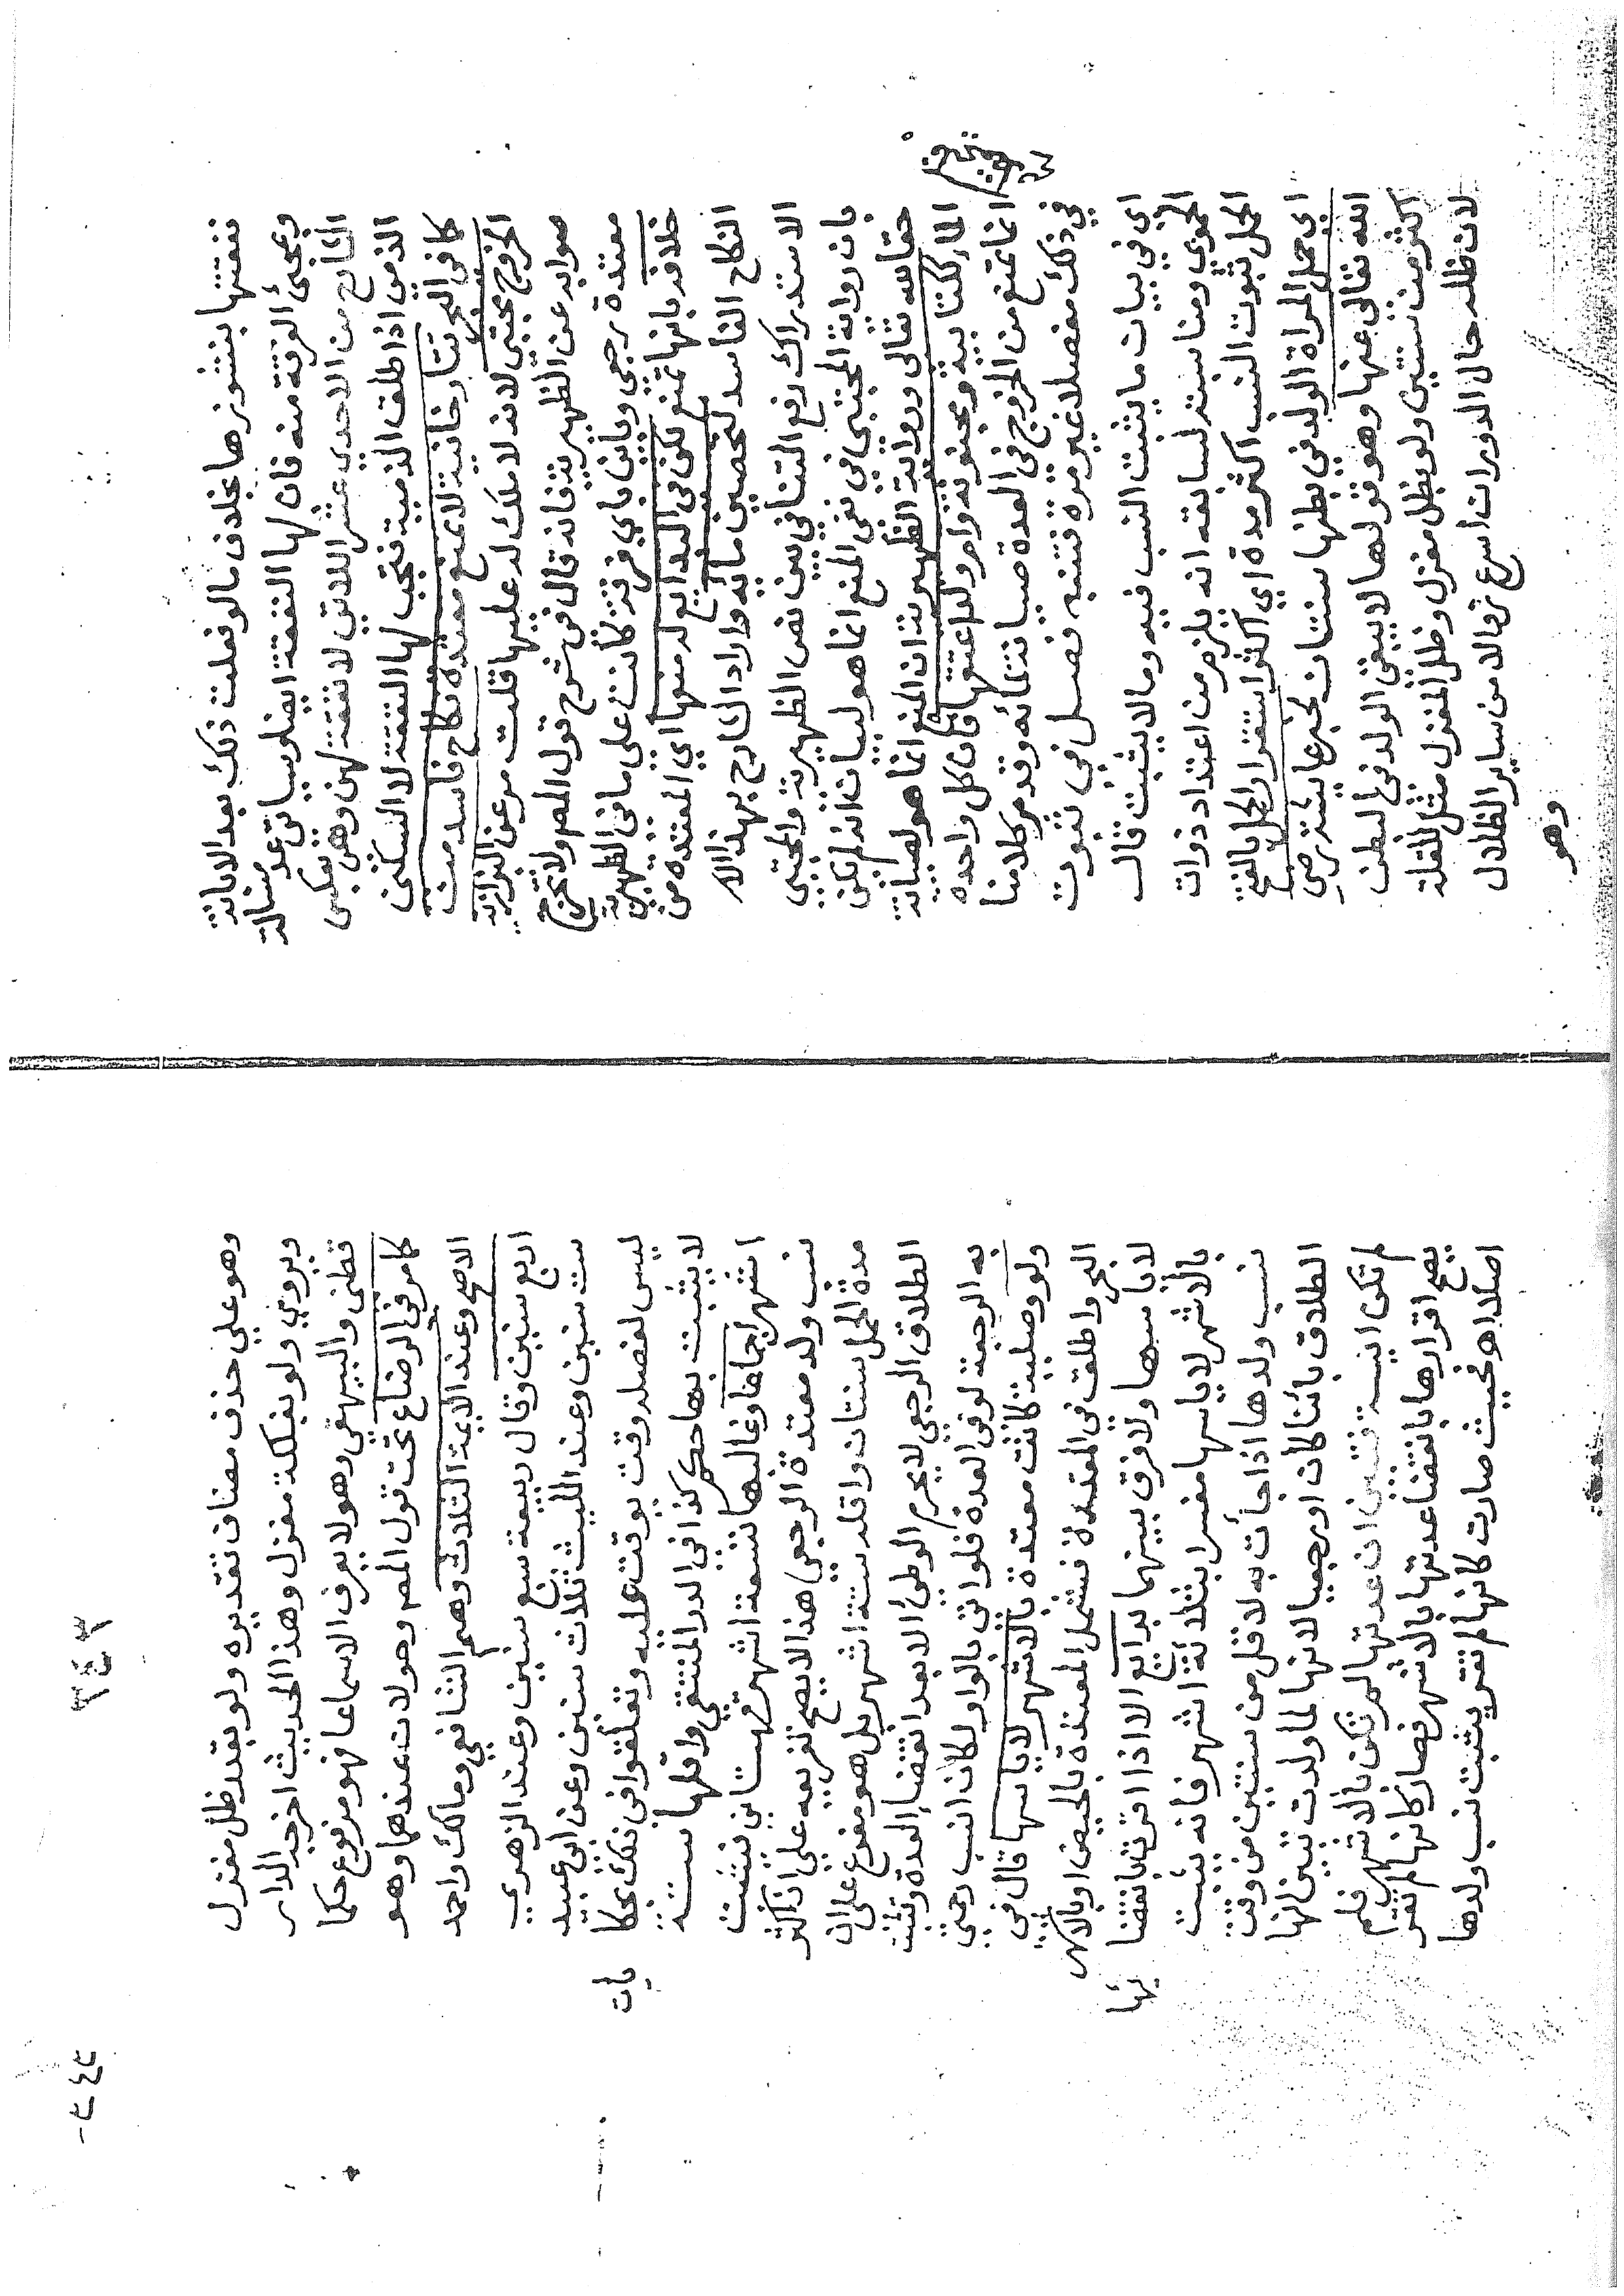 نفقتها بنشوزها بخلاف ما لو فعلت ذلك بعد الابانة
ومجئ الفرقة منه فان لها النفقة ايضا وسياتي عد مسالة
الشارح من الاحدي عشر اللاتي لا نفقة لهن وهي تمكين
الذمي اذا طلق الذمية تجب لها النفقة لا السكنى
كما في البحر تتارخانية لا تمنع معتدة نكاح فاسد من
الخروج مجتبى لانه لا ملك له عليها قلت مر عن البزازية
صوابه عن الظهيرية فانه قال في شرح قول المص ولا تخرج
معتدة رجعي وبائن باي فرقة كانت على ما في الظهيرية
خلافه بانها تمنع لكن في البدائع له منعها اي المعتدة من
النكاح الفاسد لتحصين مائه واراد الشارح بهذا الا
الاستدراك رفع التنافي بين نص الظهيرية والمجتبى
بان رواية المجتبى في نفي المنع انما هو لبيان انه لم يكن
حقا لله تعالى ورواية الظهيرية ان المنع انما هو لصيانة
الماء ككتابية ومجنونة وام ولد اعتقها فان كل واحدة
انما تمنع من الخروج في العدة صيانة لمائه وقد مر كلامنا
في ذلك مفصلا غير مرة فتنبه فصل في ثبوت
اي في بيان ما يثبت النسب فيه وما لا يثبت قال
الحموي ومناسبته لسابقه انه يلزم من اعتداد ذوات
الحمل ثبوت النسب اكثر مدة اي اكثر استقرار الحمل بالفتح
اي حمل المراة الولد في بطنها سنتان لخبر عائشة رضي
الله تعالى عنها وهو قولها لا يبقى الولد في البطن
اكثر من سنتين ولو بظل مغزل وظل المغزل مثل للقلة
لان ظله حال الدوران اسرع زوالا من ساير الظلال
وهو
وهو على حذف مضاف تقديره ولو بقدر ظل مغزل
ويروي ولو بفلكة مغزل وهذا الحديث اخرجه الدار
قطني والبيهقي وهو لا يعرف الا سماعا فهو مرفوع حكما
كما مر في الرضاع تحت قول المص وحولان عندهما وهو
الاصح وعند الايمة الثلاث وهم الشافعي ومالك واحمد
اربع سنين وقال ربيعة سبع سنين وعند الزهري
ست سنين وعند الليث ثلاث سنين وعن ابي عبيد
ليس لفصله وقت يوقت عليه وتعلقوا في ذلك بحكا
يات
لا يثبت بها حكم كذا في الدر المنتقي واقلها ستة
اشهر اجماعا وغالبها تسعة اشهر قهستاني فيثبت
نسب ولد معتدة الرجعي هذا لا يصح تفريعه على ان اكثر
مدة الحمل سنتان واقله ستة اشهر بل هو مفرع على ان
الطلاق الرجعي لا يحرم الوطئ الا بعد انقضاء العدة وتثبت
به الرجعة لو في العدة فلو اتى بالواو لكان انسب رحمتي
ولو وصلية كانت معتدة بالاشهر لاياسها قال في
البحر واطلق في المعتدة فشمل المعتدة بالحيض او بالاشهر
لاياسها ولا فرق بينهما بدائع الا اذا اقرت بانقضا
ئها
بالاشهر لاياسها مفسرا بثلاثة اشهر فانه يثبت
نسب ولدها اذا جاءت به لاقل من سنتين من وقت
الطلاق بائنا كان او رجعيا لانها لما ولدت تبين انها
لم تكن ايسة فتبين ان عدتها لم تكن بالاشهر فلم
يصح اقرارها بانقضاء عدتها بالاشهر فصار كانها لم تقر
اصلا اهـ فحيث صارت كانها لم تقر يثبت نسب ولدها
٣٤٣